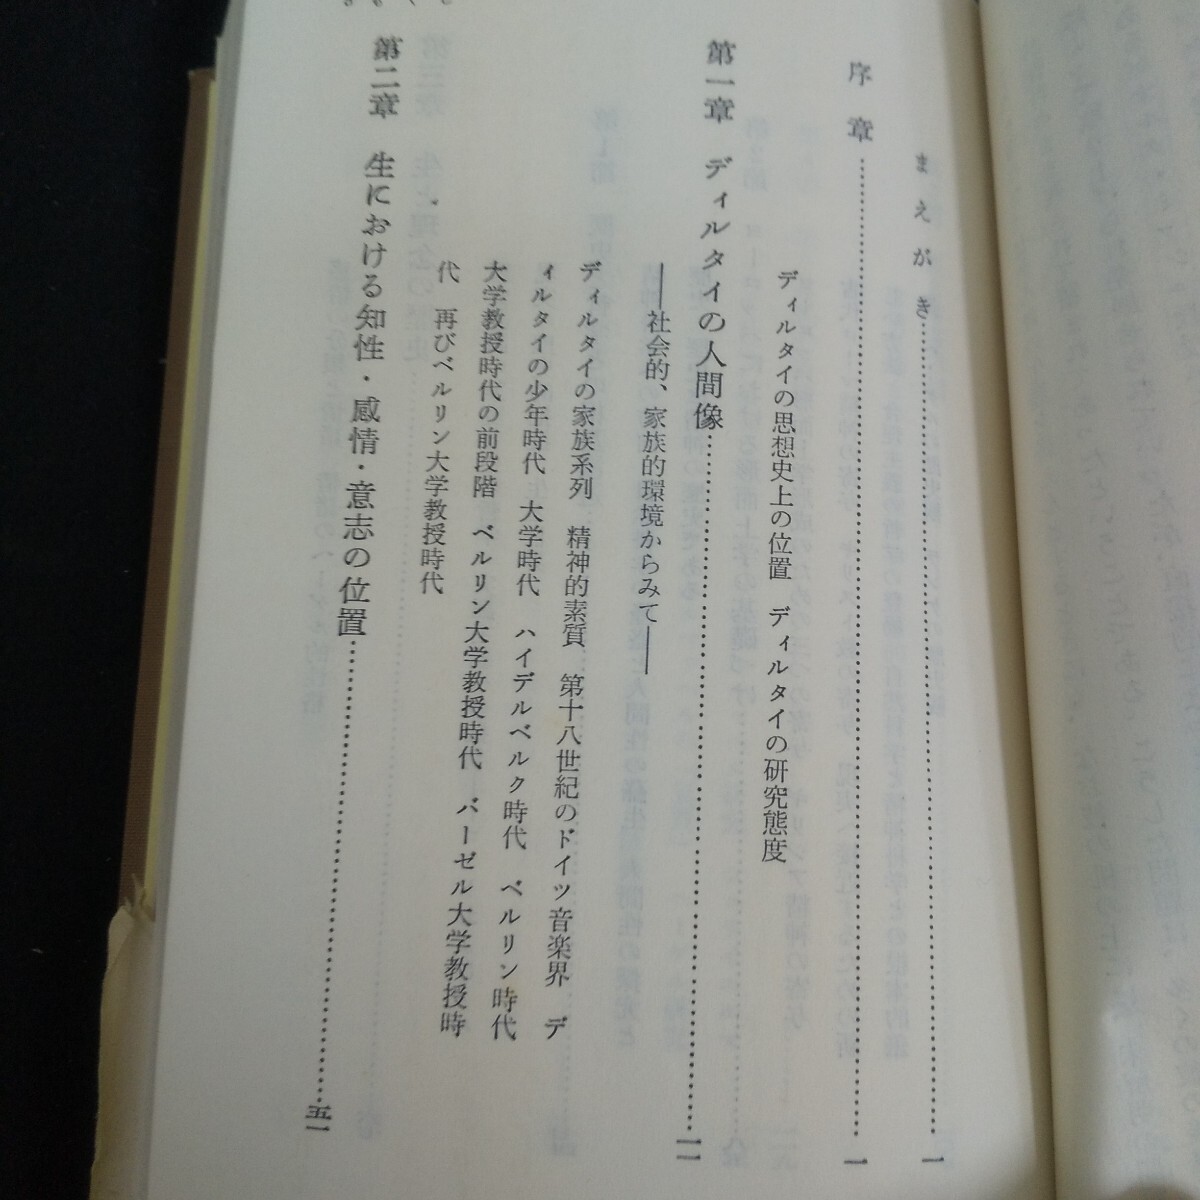 まえがき……一
序章……一
ディルタイの思想史上の位置　ディルタイの研究態度
第一章　ディルタイの人間像……一一
――社会的、家族的環境からみて――
ディルタイの家族系列　精神的素質　第十八世紀のドイツ音楽界　デ
ィルタイの少年時代　大学時代　ハイデルベルク時代　ベルリン時代
大学教授時代の前段階　ベルリン大学教授時代　バーゼル大学教授時
代　再びベルリン大学教授時代
第二章　生における知性・感情・意志の位置……五一